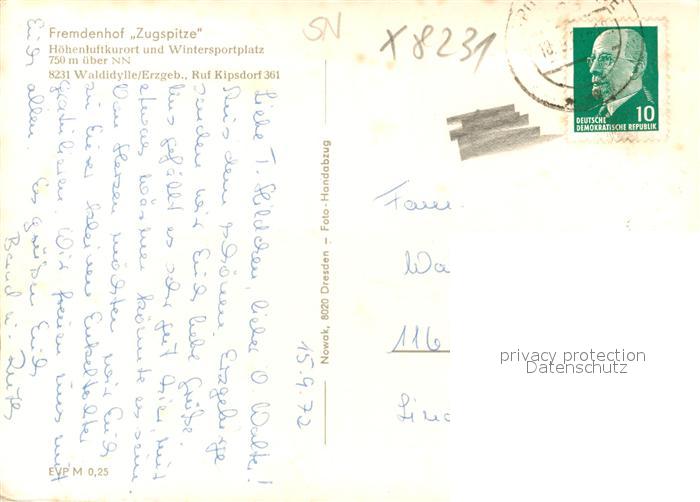 Fremdenhof „Zugspitze"
Höhenluftkurort und Wintersportplatz
750 m über NN
8231 Waldidylle/Erzgeb., Ruf Kipsdorf 361
SN
X 8231
10
DEUTSCHE
DEMOKRATISCHE REPUBLIK
15.9.72
Liebe T. Hildchen, lieber O Walter!
Aus dem schönen Erzgebirge
senden wir Euch liebe Grüße.
Uns gefällt es sehr gut hier, nur
etwas wärmer könnte es sein.
Von Herzen möchten wir Euch
zu Eurer kleinen Enkeltochter
gratulieren. Wir freuen uns mit
Euch allen. Es grüßen Euch
Bernd u.
Nowak, 8020 Dresden – Foto-Handabzug
Fam.
Wa
116
Lind
privacy protection
Datenschutz
EVP M 0,25